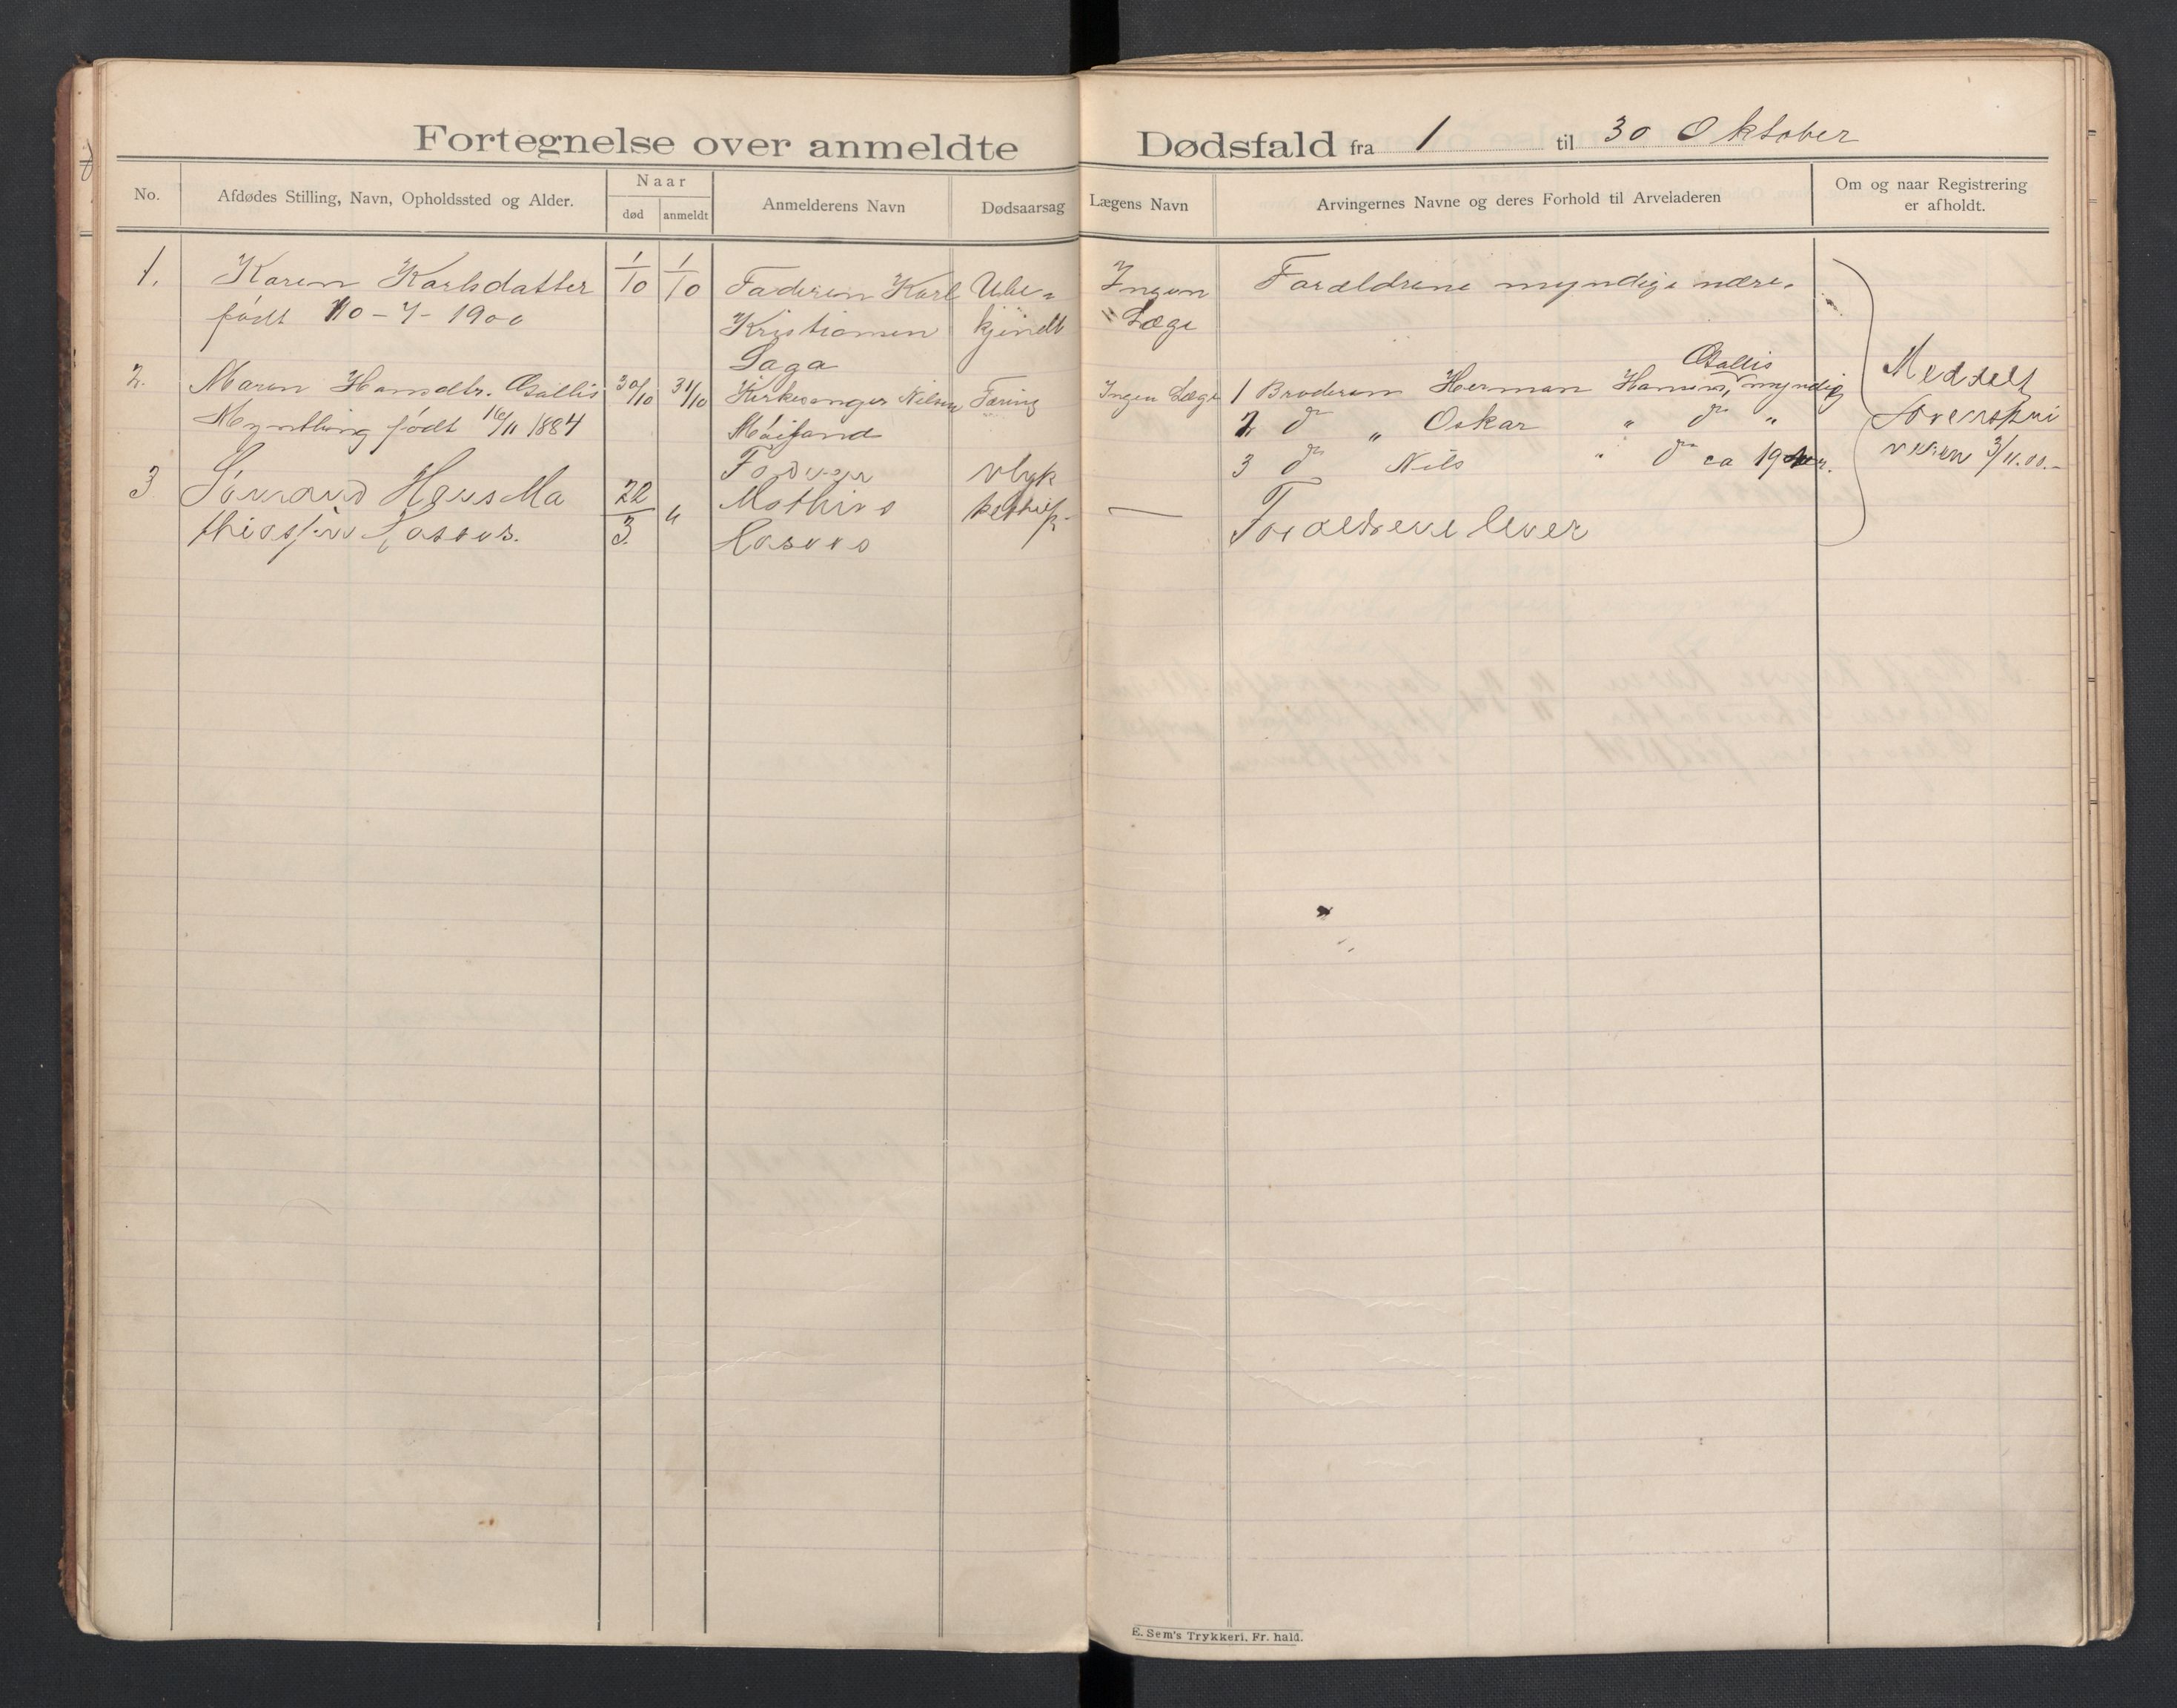 Fortegnelse over anmeldte Dødsfald fra 1 til 30 Oktober
No.
Afdødes Stilling, Navn, Opholdssted og Alder.
Naar
død
anmeldt
Anmelderens Navn
Dødsaarsag
Lægens Navn
Arvingernes Navne og deres Forhold til Arveladeren
Om og naar Registrering
er afholdt.
1.
Karen Karlsdatter
født 10-7-1900
1/10
1/10
Faderen Karl
Kristiansen
Saga
Ube=
kjendt
Ingen
Læge
Forældrene myndige
2.
Maren Hansdtr. Osallis
født 16/11 1884
30/10
31/10
Kirkesanger Nilsen
Tæring
Ingen Læge
Osallis
1 Broderen Herman Hansen, myndig
2 do „ Oskar „ do „
3 do Nils „ do ca 19
3
Hans Ma
thiassen
22/3
"
Faderen
Mathias
ulyk
—
Forældrene lever
Meddelt
3/11.00.-
E. Sem's Trykkeri, Fr. hald.